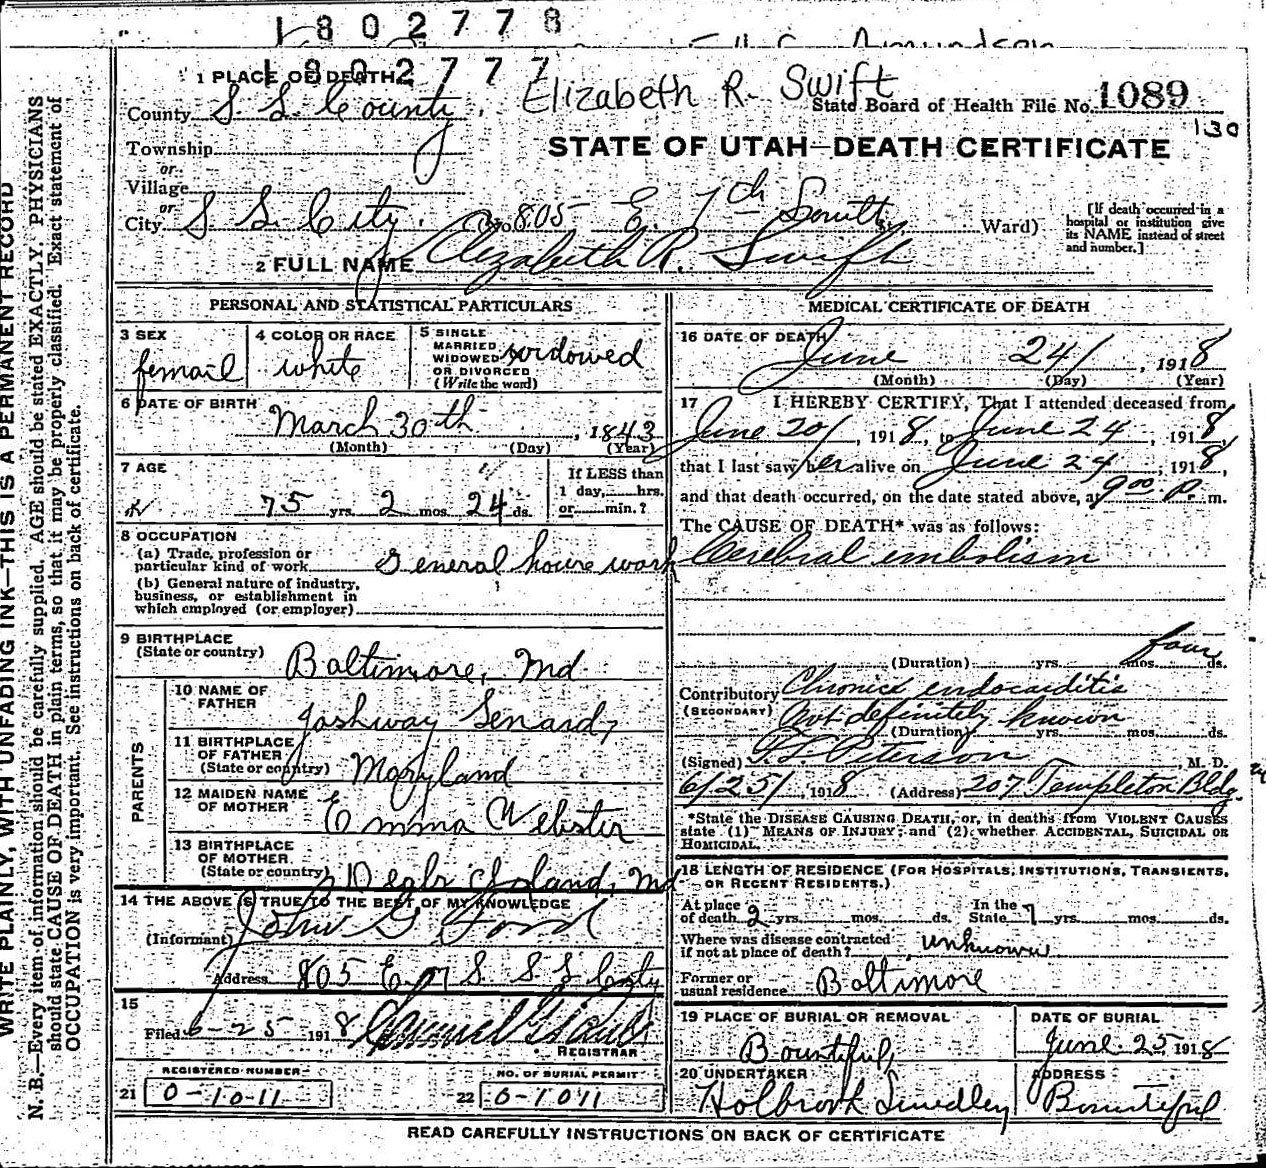 1802778
1802777
Elizabeth R. Swift
1 PLACE OF DEATH
State Board of Health File No. 1089
130
County S. L. County.
STATE OF UTAH—DEATH CERTIFICATE
Township
or
Village
or
City S. L. City. (No. 805 E. 7th South St. Ward)
[If death occurred in a hospital or institution give its NAME instead of street and number.]
2 FULL NAME Elizabeth R. Swift
PERSONAL AND STATISTICAL PARTICULARS
3 SEX femail
4 COLOR OR RACE white
5 SINGLE MARRIED WIDOWED OR DIVORCED (Write the word) widowed
6 DATE OF BIRTH March 30th, 1843
(Month) (Day) (Year)
7 AGE 75 yrs. 2 mos. 24 ds.
If LESS than 1 day, hrs. or min.?
8 OCCUPATION
(a) Trade, profession or particular kind of work General house work
(b) General nature of industry, business, or establishment in which employed (or employer)
9 BIRTHPLACE (State or country) Baltimore, Md
PARENTS
10 NAME OF FATHER Joshway Senard,
11 BIRTHPLACE OF FATHER (State or country) Maryland
12 MAIDEN NAME OF MOTHER Emma Webster
13 BIRTHPLACE OF MOTHER (State or country) Island, Md
14 THE ABOVE IS TRUE TO THE BEST OF MY KNOWLEDGE
(Informant) John G Ford
Address 805 E 7 S. S L City
15
Filed 6-25 1918
REGISTRAR
REGISTERED NUMBER
21 0-1011
NO. OF BURIAL PERMIT
22 6-1011
MEDICAL CERTIFICATE OF DEATH
16 DATE OF DEATH June 24, 1918
(Month) (Day) (Year)
17 I HEREBY CERTIFY, That I attended deceased from
June 20, 1918, to June 24, 1918,
that I last saw her alive on June 24, 1918,
and that death occurred, on the date stated above, at 9 00 P. m.
The CAUSE OF DEATH* was as follows:
Cerebral embolism
(Duration) yrs. mos. four ds.
Contributory Chronic endocarditis
(SECONDARY) Not definitely known
(Duration) yrs. mos. ds.
(Signed) Peterson, M. D.
6/25/, 1918 (Address) 207 Templeton Bldg.
*State the DISEASE CAUSING DEATH, or, in deaths from VIOLENT CAUSES state (1) MEANS OF INJURY; and (2) whether ACCIDENTAL, SUICIDAL OR HOMICIDAL.
18 LENGTH OF RESIDENCE (FOR HOSPITALS, INSTITUTIONS, TRANSIENTS, OR RECENT RESIDENTS.)
At place of death 2 yrs. mos. ds. In the State 7 yrs. mos. ds.
Where was disease contracted if not at place of death? unknown
Former or usual residence Baltimore
19 PLACE OF BURIAL OR REMOVAL Bountiful,
DATE OF BURIAL June 25 1918
20 UNDERTAKER Holbrook Smedley
ADDRESS Bountiful
READ CAREFULLY INSTRUCTIONS ON BACK OF CERTIFICATE
WRITE PLAINLY, WITH UNFADING INK—THIS IS A PERMANENT RECORD
N. B.—Every item of information should be carefully supplied. AGE should be stated EXACTLY. PHYSICIANS
should state CAUSE OF DEATH in plain terms, so that it may be properly classified. Exact statement of
OCCUPATION is very important. See instructions on back of certificate.